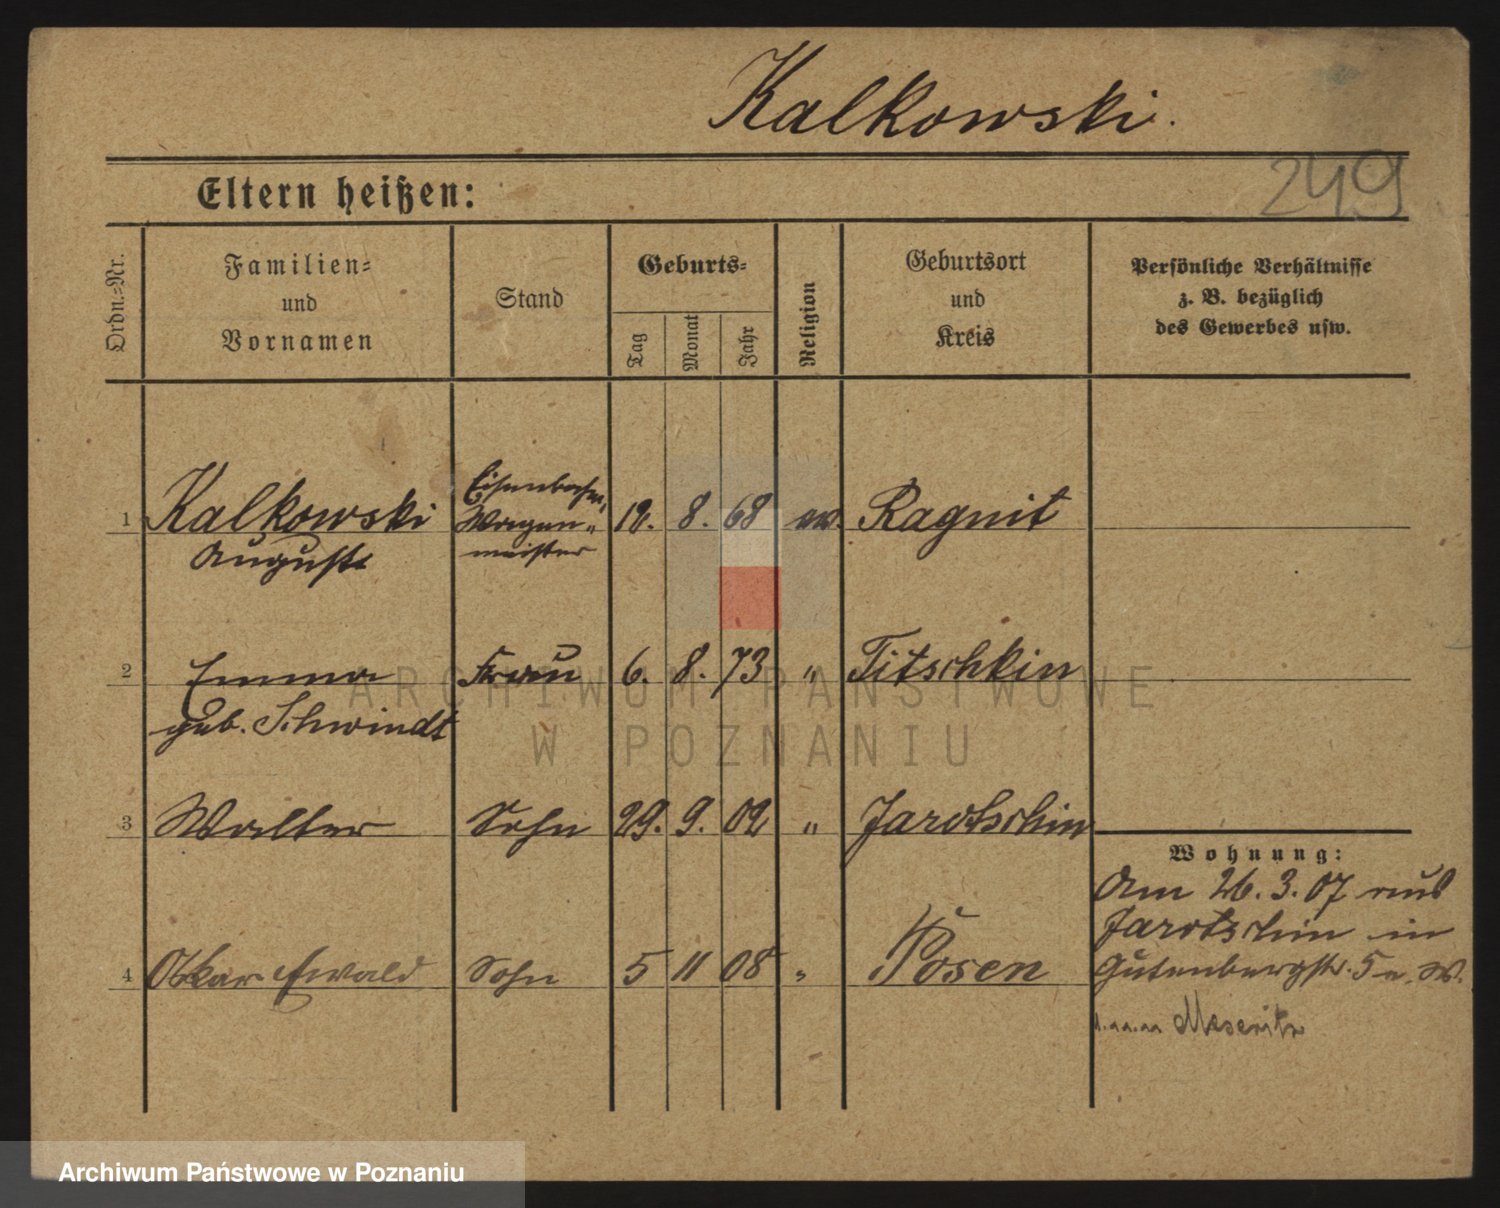 Kalkowski.
249
Eltern heißen:
Ordn.-Nr.
Familien-
und
Vornamen
Stand
Geburts-
Tag
Monat
Jahr
Religion
Geburtsort
und
Kreis
Persönliche Verhältnisse
z. B. bezüglich
des Gewerbes usw.
1 Kalkowski August Eisenbahn Wagen- meister 12. 8. 68 ev. Ragnit
2 Emma geb. Schwindt Frau 6. 8. 73 " Titschkin
3 Walter Sohn 29. 9. 02 " Jarotschin
4 Oskar Ewald Sohn 5 11 08 " Posen
Wohnung:
Am 26. 3. 07 aus
Jarotschin in
Gutenbergstr. 5 W.
Meseritz
ARCHIWUM PAŃSTWOWE
W POZNANIU
Archiwum Państwowe w Poznaniu